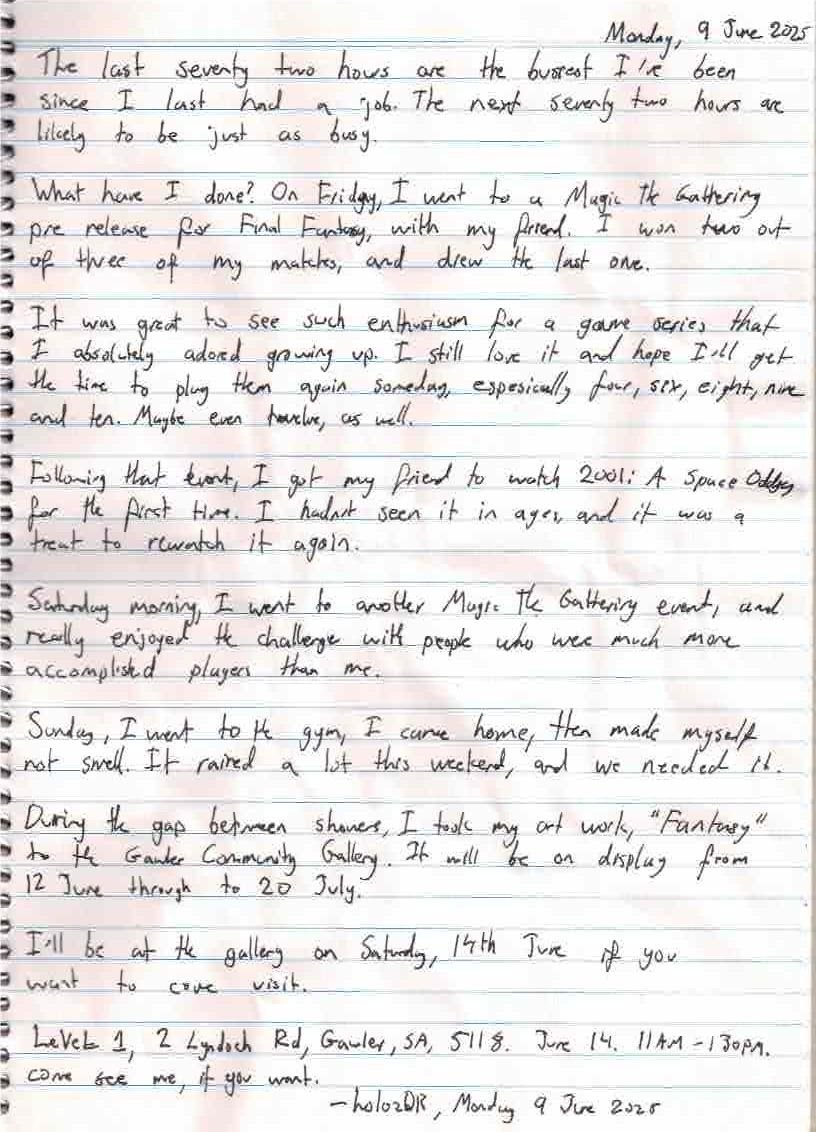 Monday, 9 June 2025
The last seventy two hours are the busiest I've been
since I last had a job. The next seventy two hours are
likely to be just as busy.
What have I done? On Friday, I went to a Magic The Gathering
pre release for Final Fantasy, with my friend. I won two out
of three of my matches, and drew the last one.
It was great to see such enthusiasm for a game series that
I absolutely adored growing up. I still love it and hope I'll get
the time to play them again someday, espesically four, six, eight, nine
and ten. Maybe even twelve, as well.
Following that event, I got my friend to watch 2001: A Space Oddsey
for the first time. I hadn't seen it in ages, and it was a
treat to rewatch it again.
Saturday morning, I went to another Magic The Gathering event, and
really enjoyed the challenge with people who were much more
accomplished players than me.
Sunday, I went to the gym, I came home, then made myself
not smell. It rained a lot this weekend, and we needed it.
During the gap between showers, I took my art work, "Fantasy"
to the Gawler Community Gallery. It will be on display from
12 June through to 20 July.
I'll be at the gallery on Saturday, 14th June if you
want to come visit.
Level 1, 2 Lyndoch Rd, Gawler, SA, 5118. June 14. 11AM - 130PM.
come see me, if you want.
- holozDR, Monday 9 June 2025